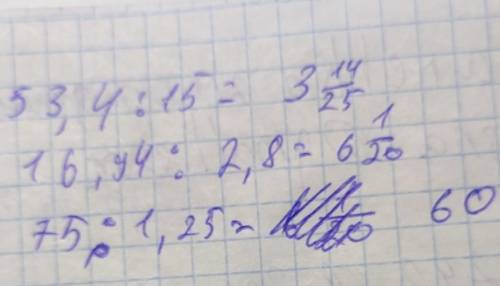 53,4:15= 3 14/25
16,94:2,8=6 1/20
75:1,25= 60